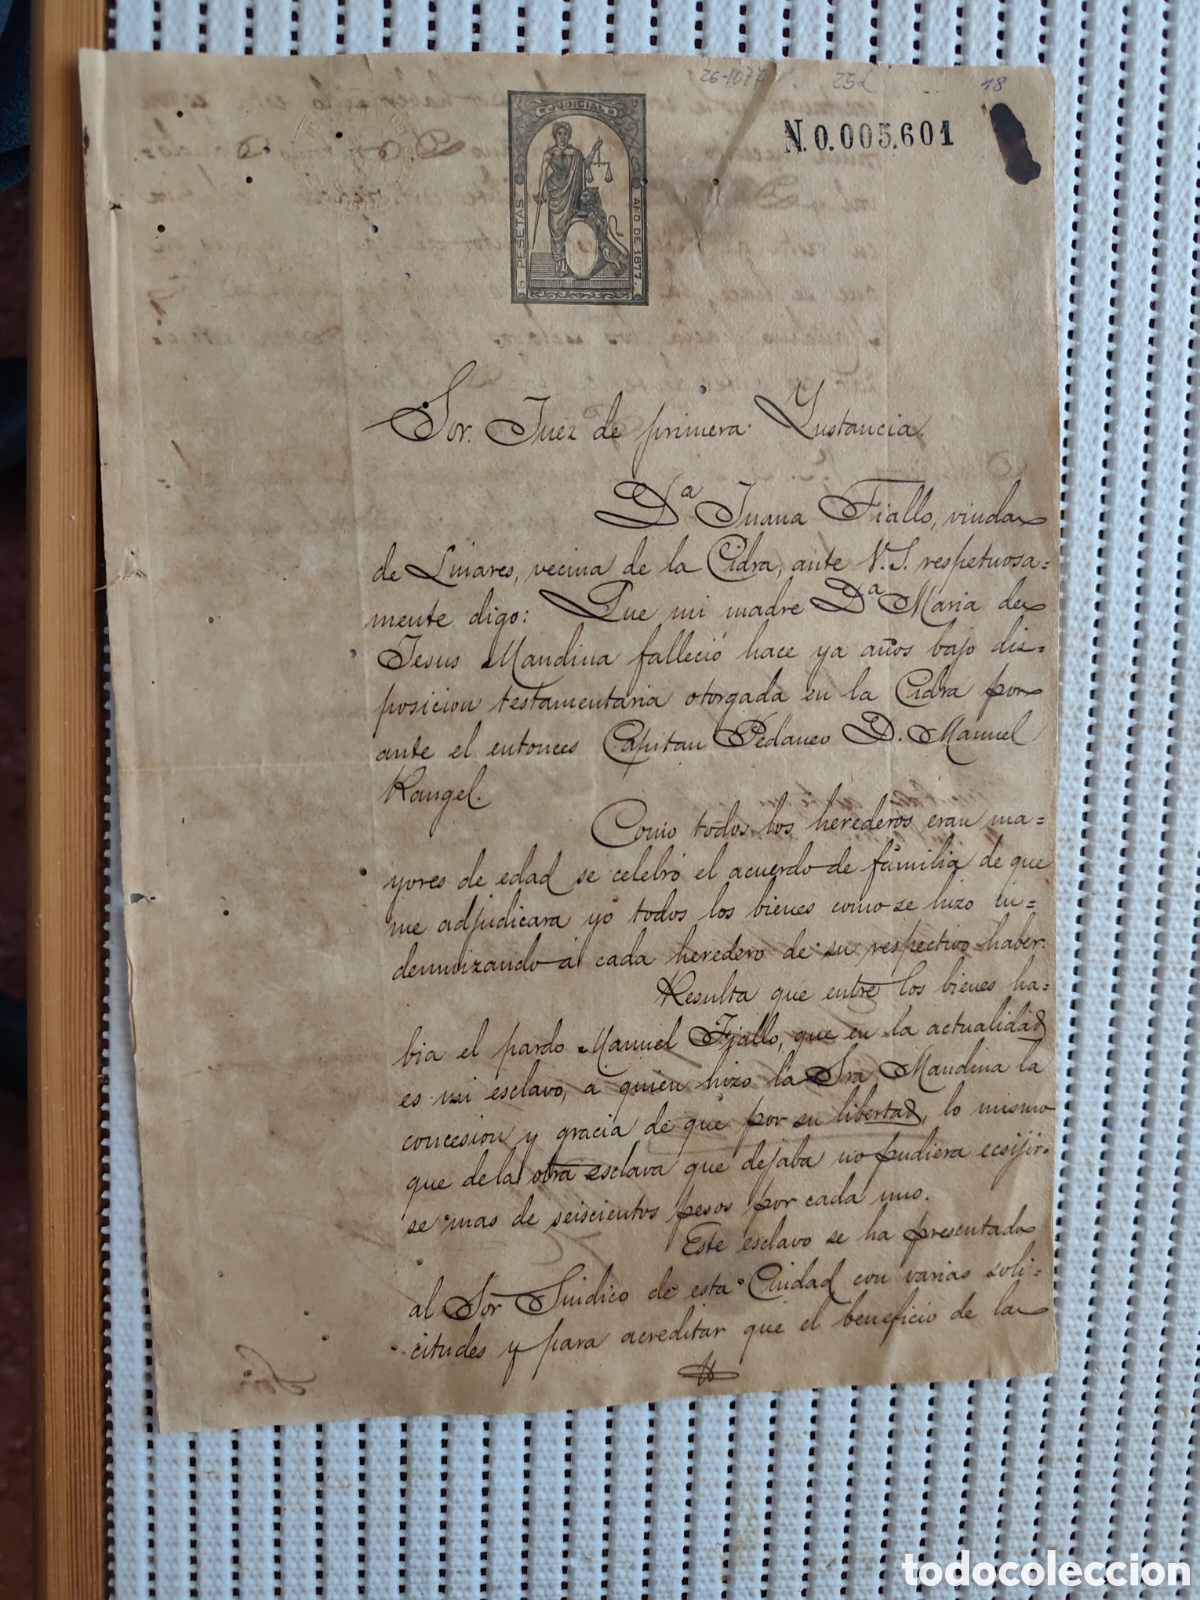 26-1077 25£ 18
JUDICIAL
PESETAS
AÑO DE 1877
N.0.005.601
Sor. Juez de primera Ynstancia.
Dª Juana Fiallo, viuda
de Linares, vecina de la Cidra, ante V.S. respetuosa=
mente digo: Que mi madre Dª Maria de
Jesus Mandina falleció hace ya años bajo dis=
posicion testamentaria otorgada en la Cidra por
ante el entonces Capitan Pedaneo D. Manuel
Rangel.
Como todos los herederos eran ma=
yores de edad se celebró el acuerdo de familia de que
me adjudicara yo todos los bienes como se hizo in=
demnizando á cada heredero de su respectivo haber.
Resulta que entre los bienes ha=
bia el pardo Manuel Fiallo, que en la actualidad
es mi esclavo, a quien hizo la Sra Mandina la
concesion y gracia de que por su libertad, lo mismo
que de la otra esclava que dejaba no pudiera ecsijir=
se mas de seiscientos pesos por cada uno.
Este esclavo se ha presentado
al Sor Sindico de esta Ciudad con varias soli=
citudes y para acreditar que el beneficio de la
todocoleccion